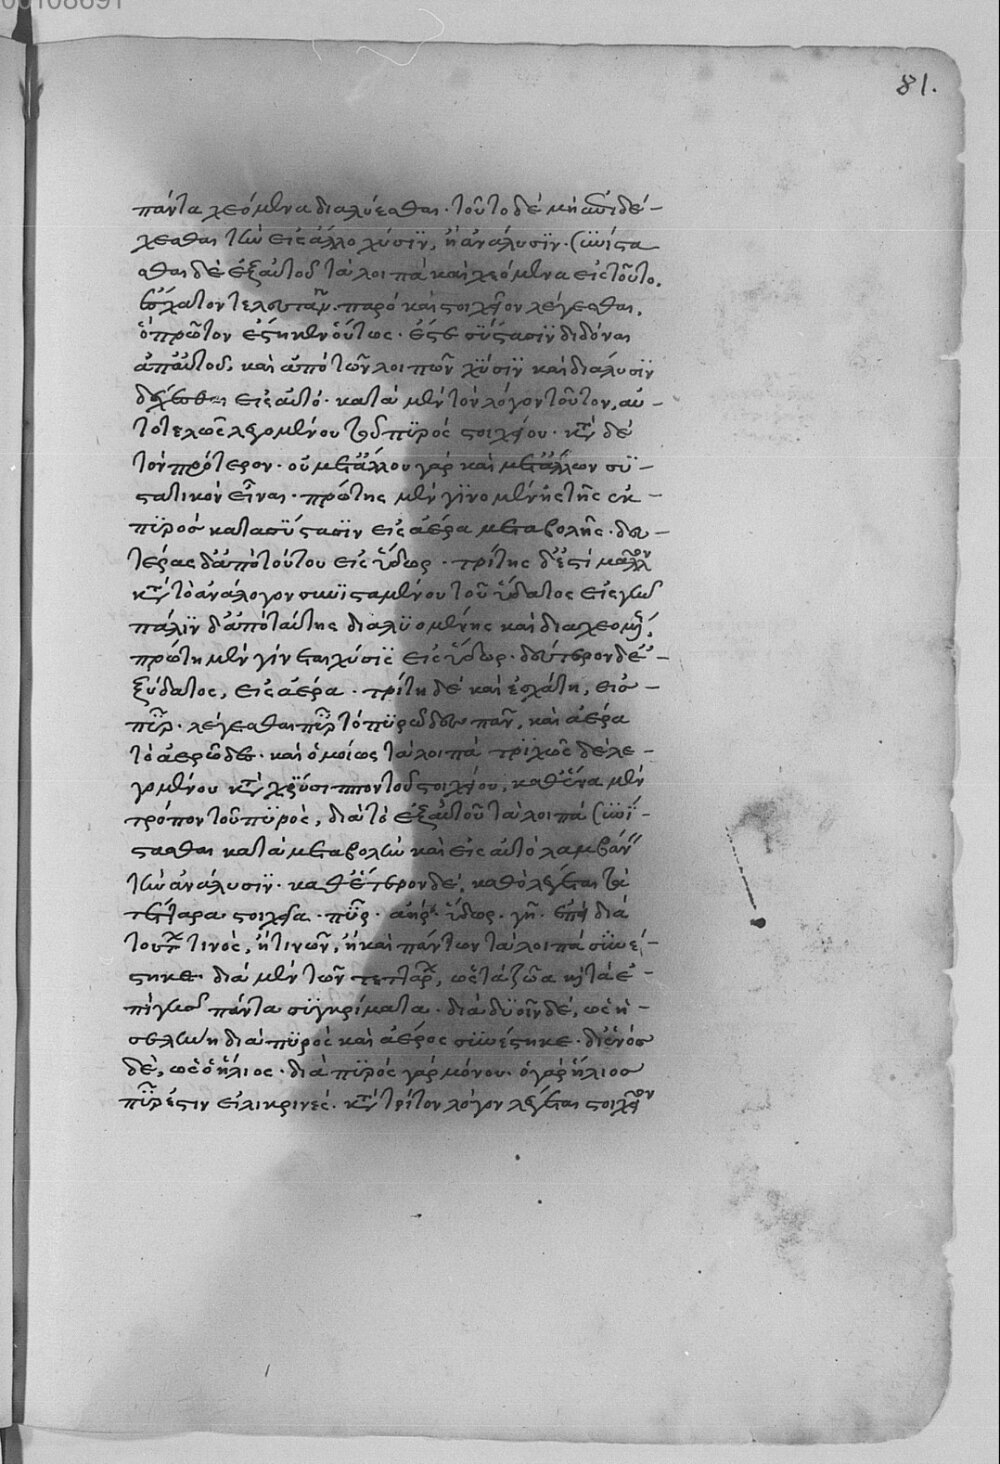 00108691
81.
πάντα χεόμενα διαλύεσθαι· τοῦτο δὲ μὴ ἐπιδέ-
χεσθαι τὴν εἰς ἄλλο χύσϊν, ἢ ἀνάλυσϊν· συνίστα
σθαι δὲ ἐξ αὐτοῦ τὰ λοιπὰ καὶ χεόμενα εἰς τοῦτο
ἔσχατον τελευτᾶν· παρὸ καὶ στοιχεῖον λέγεσθαι,
ὃ πρῶτον ἕστηκεν οὕτως· ὥστε σύστασϊν διδόναι
ἀπ' αὐτοῦ, καὶ ἀπὸ τῶν λοιπῶν χύσϊν καὶ διάλυσϊν
δέχεσθαι εἰς αὐτό· κατὰ μὲν τὸν λόγον τοῦτον, αὐ-
τοτελῶς λεγομένου τοῦ πϋρὸς στοιχείου· κατὰ τὸν δὲ
τὸν πρότερον· οὐ μετ' ἄλλου γὰρ καὶ μετ' ἄλλων σϋ-
στατικὸν εἶναι· πρώτης μὲν γϊνομένης τῆς ἐκ-
πϋρὸς κατὰ σϋστασϊν εἰς ἀέρα μεταβολῆς· δευ-
τέρας δ' ἀπὸ τούτου εἰς ὕδωρ· τρίτης δ' ἔτι μᾶλλον
κατὰ τὸ ἀνάλογον συνϊσταμένου τοῦ ὕδατος εἰς γῆν
πάλϊν δ' ἀπὸ ταύτης διαλϋομένης καὶ διαχεομένης,
πρώτη μὲν γίνεται χύσϊς εἰς ὕδωρ· δεύτερον δὲ ἐ-
ξ ὕδατος, εἰς ἀέρα· τρίτη δὲ καὶ ἐσχάτη, εἰς-
πῦρ· λέγεσθαι πῦρ τὸ πϋρῶδες πᾶν, καὶ ἀέρα
τὸ ἀερῶδες· καὶ ὁμοίως τὰ λοιπὰ τρϊχῶς δὲ λε-
γομένου κατὰ χρϋσιππον τοῦ στοιχείου, καθ' ἕνα μὲν
τρόπον τοῦ πϋρὸς, διὰ τὸ ἐξ αὐτοῦ τὰ λοιπὰ συνϊ-
στασθαι κατὰ μεταβολὴν καὶ εἰς αὐτὸ λαμβάνειν
τὴν ἀνάλυσϊν· καθ' ἕτερον δὲ, καθὸ λέγεται τὰ
τέτταρα στοιχεῖα· πῦρ· ἀήρ· ὕδωρ· γῆ· ἐπεὶ διὰ
τούτων τινὸς, ἤ τινων, ἢ καὶ πάντων τὰ λοιπὰ σϋνέ-
στηκε· διὰ μὲν τῶν τεττάρων, ὡς τὰ ζῶα καὶ τὰ ἐ-
πὶ γῆς πάντα σϋγκρίματα· διὰ δϋοῖν δὲ, ὡς ἡ-
σελήνη διὰ πϋρὸς καὶ ἀέρος σϋνέστηκε· δι' ἑνὸς
δὲ, ὡς ὁ ἥλιος· διὰ πϋρὸς γὰρ μόνου· ὁ γὰρ ἥλιος
πῦρ ἐστιν εἰλικρινές· κατὰ τρίτον λόγον λέγεται στοιχεῖον